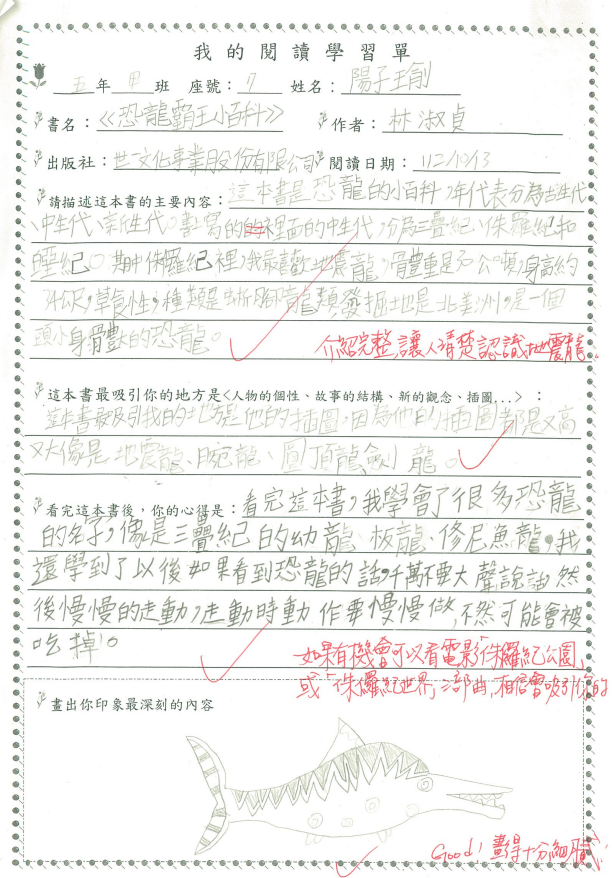 我的閱讀學習單
五年甲班 座號：7 姓名：陽子瑜
書名：《恐龍霸王小百科》 作者：林淑貞
出版社：世一文化事業股份有限公司 閱讀日期：112/10/13
請描述這本書的主要內容：這本書是恐龍的小百科,年代表分為古生代
、中生代、新生代。書寫的的裡面的中生代,分為三疊紀、侏羅紀和
堊紀。期中侏羅紀裡,我最喜歡地震龍,體重是30公噸,身高約
公尺,草食性,種類是蜥腳龍類,發掘地是北美洲,是一個
頭小身體大的恐龍。
介紹完整,讓人清楚認識地震龍.
這本書最吸引你的地方是<人物的個性、故事的結構、新的觀念、插圖...>：
這本書最吸引我的地方是他的插圖,因為他的插圖都是又高
又大像是地震龍、腕龍、圓頂龍、劍龍。
看完這本書後，你的心得是：看完這本書,我學會了很多恐龍
的名字,像是三疊紀的幼龍、板龍、修尼魚龍。我
還學到了以後如果看到恐龍的話,千萬不要大聲說話,然
後慢慢的走動,走動時動作要慢慢做,不然可能會被
吃掉。
如果有機會可以看電影「侏羅紀公園」
或「侏儸紀世界」三部曲,相信會吸引你的
畫出你印象最深刻的內容
Good! 畫得十分細膩